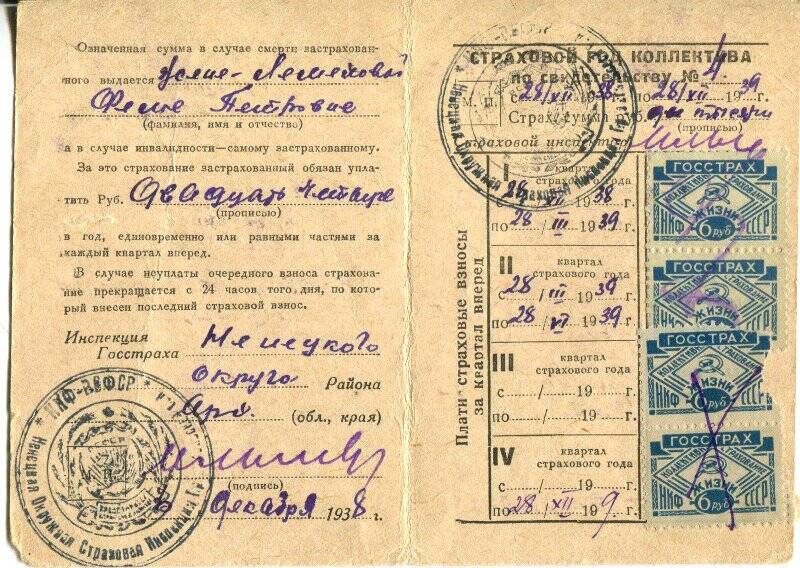 Означенная сумма в случае смерти застрахован-
ного выдается
Петровне
(фамилия, имя и отчество)
а в случае инвалидности—самому застрахованному.
За это страхование застрахованный обязан упла-
тить Руб. Двадцать четыре
(прописью)
в год, единовременно или равными частями за
каждый квартал вперед.
В случае неуплаты очередного взноса страхова-
ние прекращается с 24 часов того дня, по ко-
торый внесен последний страховой взнос.
Инспекция Госстраха Ненецкого
Округа Района
Арх. (обл., края)
(подпись)
декабря 1938 г.
НКФ-РСФСР
Ненецкая Окружная Страховая Инспекция
СТРАХОВОЙ ГОД КОЛЛЕКТИВА
по свидетельству № 4
М. П. с 28/XII 38 28/XII 1939
Страх. сумма руб. две тысячи
(прописью)
Страховой инспектор
НКФ-РСФСР
Ненецкая Окружная Страховая Инспекция
Плати страховые взносы
за квартал вперед
I квартал
страхового года
с 28 XII 1938
по 28/III 1939
II квартал
страхового года
с 28/III 1939 г.
по 28/VI 1939 г.
III квартал
страхового года
с / 19 г.
по / 19 г.
IV квартал
страхового года
с / 19 г.
по 28/XII 19 9 г.
ГОССТРАХ
КОЛЛЕКТИВНОЕ СТРАХОВАНИЕ
ЖИЗНИ
НКФ 6 руб СССР
ГОССТРАХ
КОЛЛЕКТИВНОЕ СТРАХОВАНИЕ
ЖИЗНИ
ГОССТРАХ
КОЛЛЕКТИВНОЕ СТРАХОВАНИЕ
ЖИЗНИ
НКФ 6 руб СССР
ГОССТРАХ
КОЛЛЕКТИВНОЕ СТРАХОВАНИЕ
ЖИЗНИ
НКФ 6 руб СССР